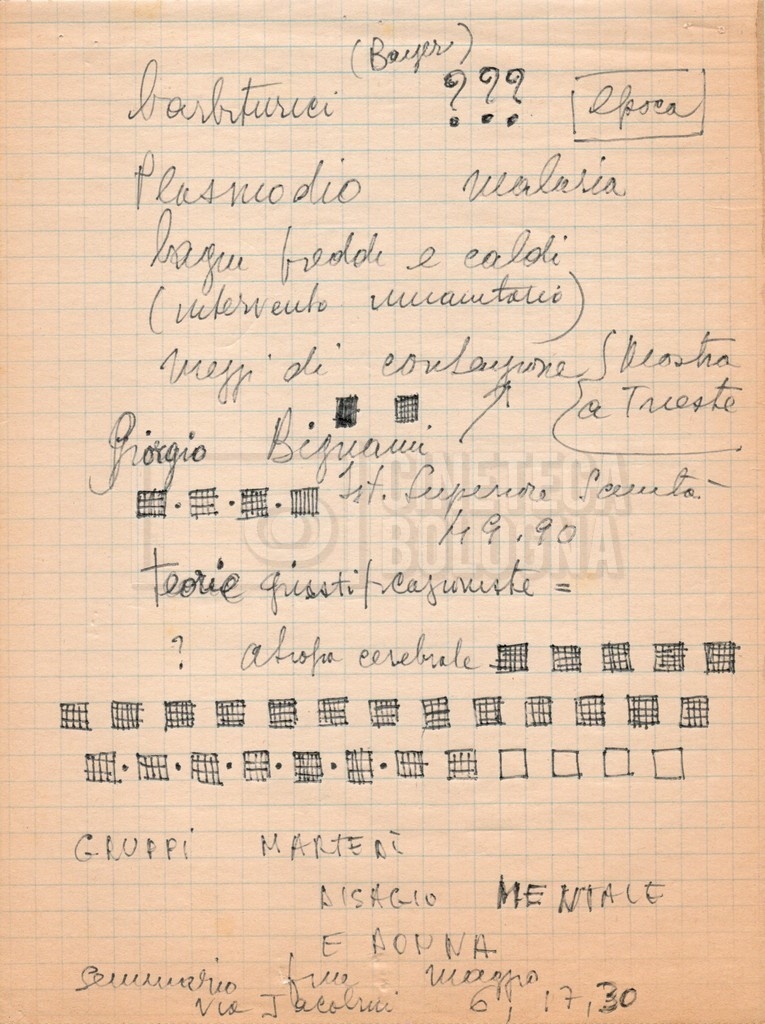 (Bayer)
barbiturici ??? epoca
Plasmodio malaria
bagni freddi e caldi
(intervento umanitario)
mezzi di contenzione { Mostra
a Trieste
Giorgio Bignami
Ist. Superiore Sanità
49.90
CINETECA
BOLOGNA
Teorie giustificazioniste =
? atrofia cerebrale
GRUPPI MARTEDÌ
DISAGIO MENTALE
E DONNA
seminario fine maggio
Via Jacobini 6, 17,30